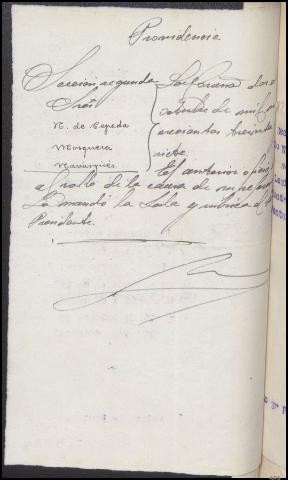 Providencia
Sección segunda
Sres
N. de Cepeda
Mosquera
Navarqués
La Coruña doce
octubre de mil no
vecientos treinta
siete.
El anterior oficio
al rollo de la causa de su referencia
Lo mandó la Sala y rubrica el Sr.
Presidente.